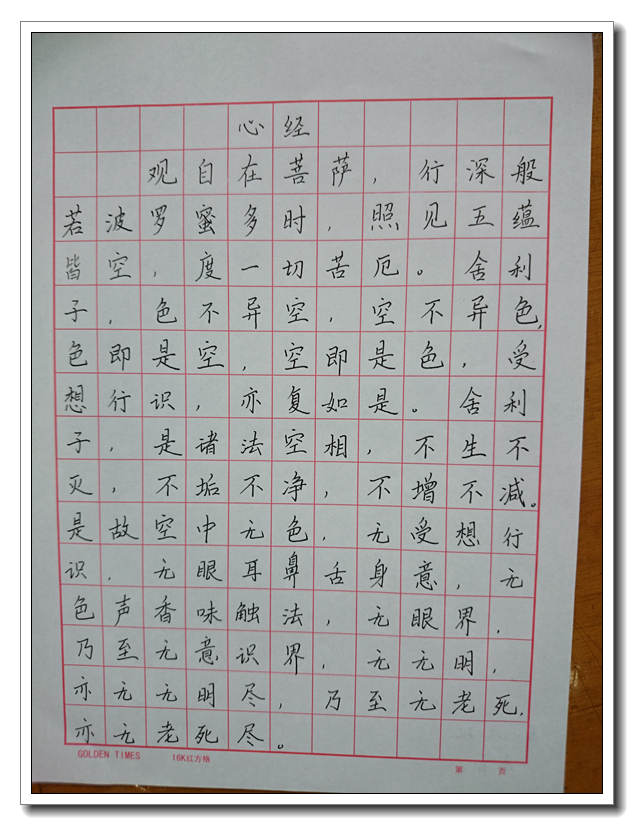 心经
观自在菩萨，行深般
若波罗蜜多时，照见五蕴
皆空，度一切苦厄。舍利
子，色不异空，空不异色，
色即是空，空即是色，受
想行识，亦复如是。舍利
子，是诸法空相，不生不
灭，不垢不净，不增不减。
是故空中无色，无受想行
识，无眼耳鼻舌身意，无
色声香味触法，无眼界，
乃至无意识界，无无明，
亦无无明尽，乃至无老死，
亦无老死尽。
GOLDEN TIMES 16K红方格 第 页